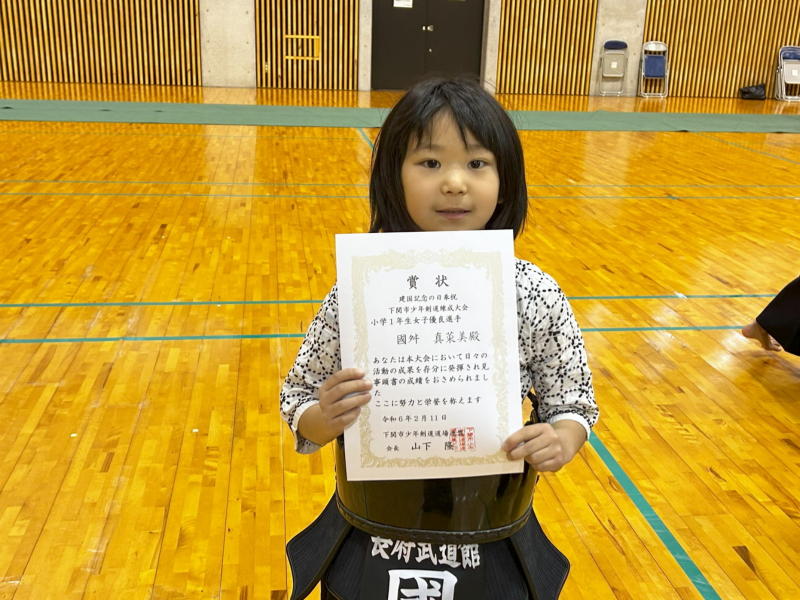 賞状
建国記念の日奉祝
下関市少年剣道錬成大会
小学1年生女子優良選手
國舛 真菜美殿
あなたは本大会において日々の
活動の成果を存分に発揮され見
事頭書の成績をおさめられまし
た
ここに努力と栄誉を称えます
令和6年2月11日
下関市少年剣道道場連盟
会長 山下 隆
長府武道館
國